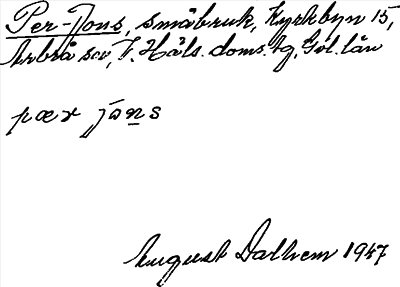 Per-Jons, småbruk, Kyrkbyn 15,
Arbrå sn, V. Häls. doms. tg, Gvl. län
pær jons
August Dalhem 1947